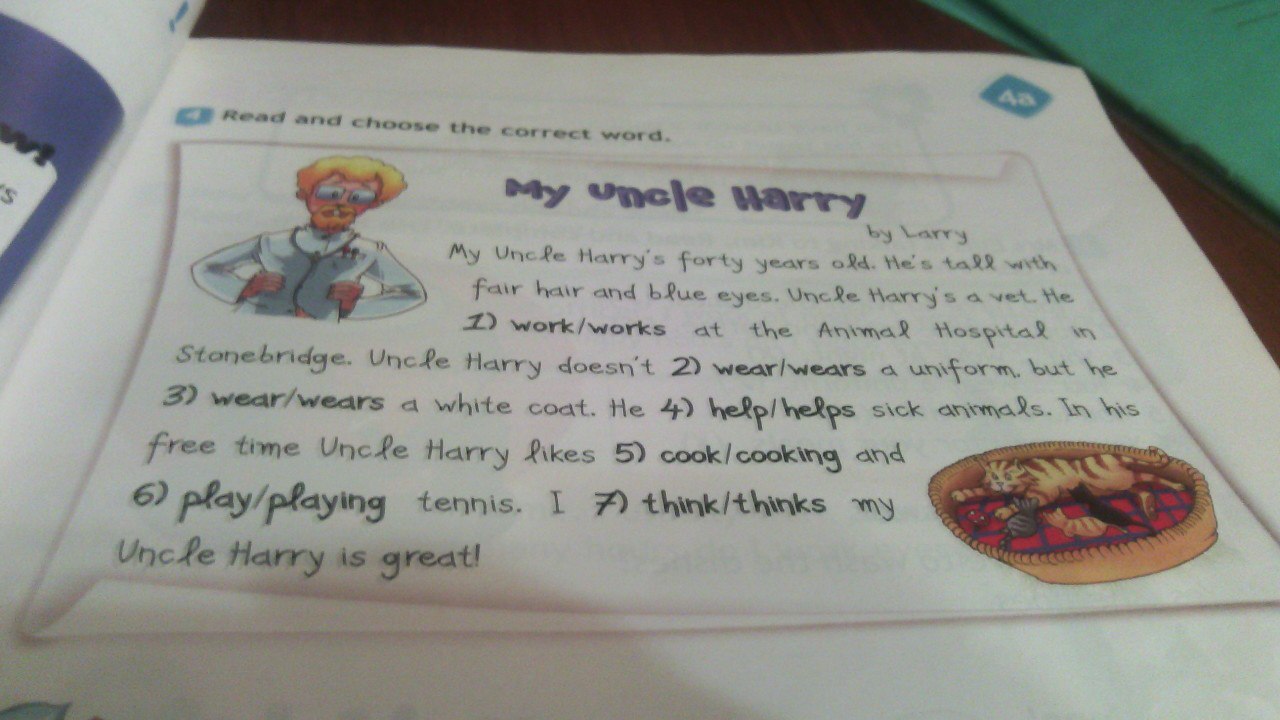 4a
4 Read and choose the correct word.
My Uncle Harry
by Larry
My Uncle Harry's forty years old. He's tall with
fair hair and blue eyes. Uncle Harry's a vet. He
1) work/works at the Animal Hospital in
Stonebridge. Uncle Harry doesn't 2) wear/wears a uniform, but he
3) wear/wears a white coat. He 4) help/helps sick animals. In his
free time Uncle Harry likes 5) cook/cooking and
6) play/playing tennis. I 7) think/thinks my
Uncle Harry is great!